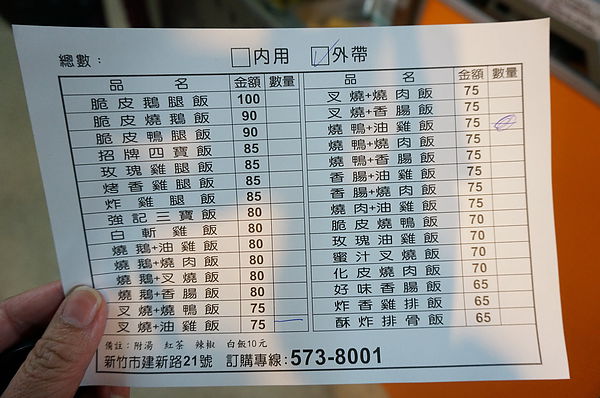 總數： 內用 外帶
品名 金額 數量
脆皮鵝腿飯 100
脆皮燒鵝飯 90
脆皮鴨腿飯 90
招牌四寶飯 85
玫瑰雞腿飯 85
烤香雞腿飯 85
炸雞腿飯 85
強記三寶飯 80
白斬雞飯 80
燒鵝+油雞飯 80
燒鵝+燒肉飯 80
燒鵝+叉燒飯 80
燒鵝+香腸飯 80
叉燒+燒鴨飯 75
叉燒+油雞飯 75
品名 金額 數量
叉燒+燒肉飯 75
叉燒+香腸飯 75
燒鴨+油雞飯 75
燒鴨+燒肉飯 75
燒鴨+香腸飯 75
香腸+油雞飯 75
香腸+燒肉飯 75
燒肉+油雞飯 75
脆皮燒鴨飯 70
玫瑰油雞飯 70
蜜汁叉燒飯 70
化皮燒肉飯 70
好味香腸飯 65
炸香雞排飯 65
酥炸排骨飯 65
備註：附湯 紅茶 辣椒 白飯10元
新竹市建新路21號 訂購專線：573-8001